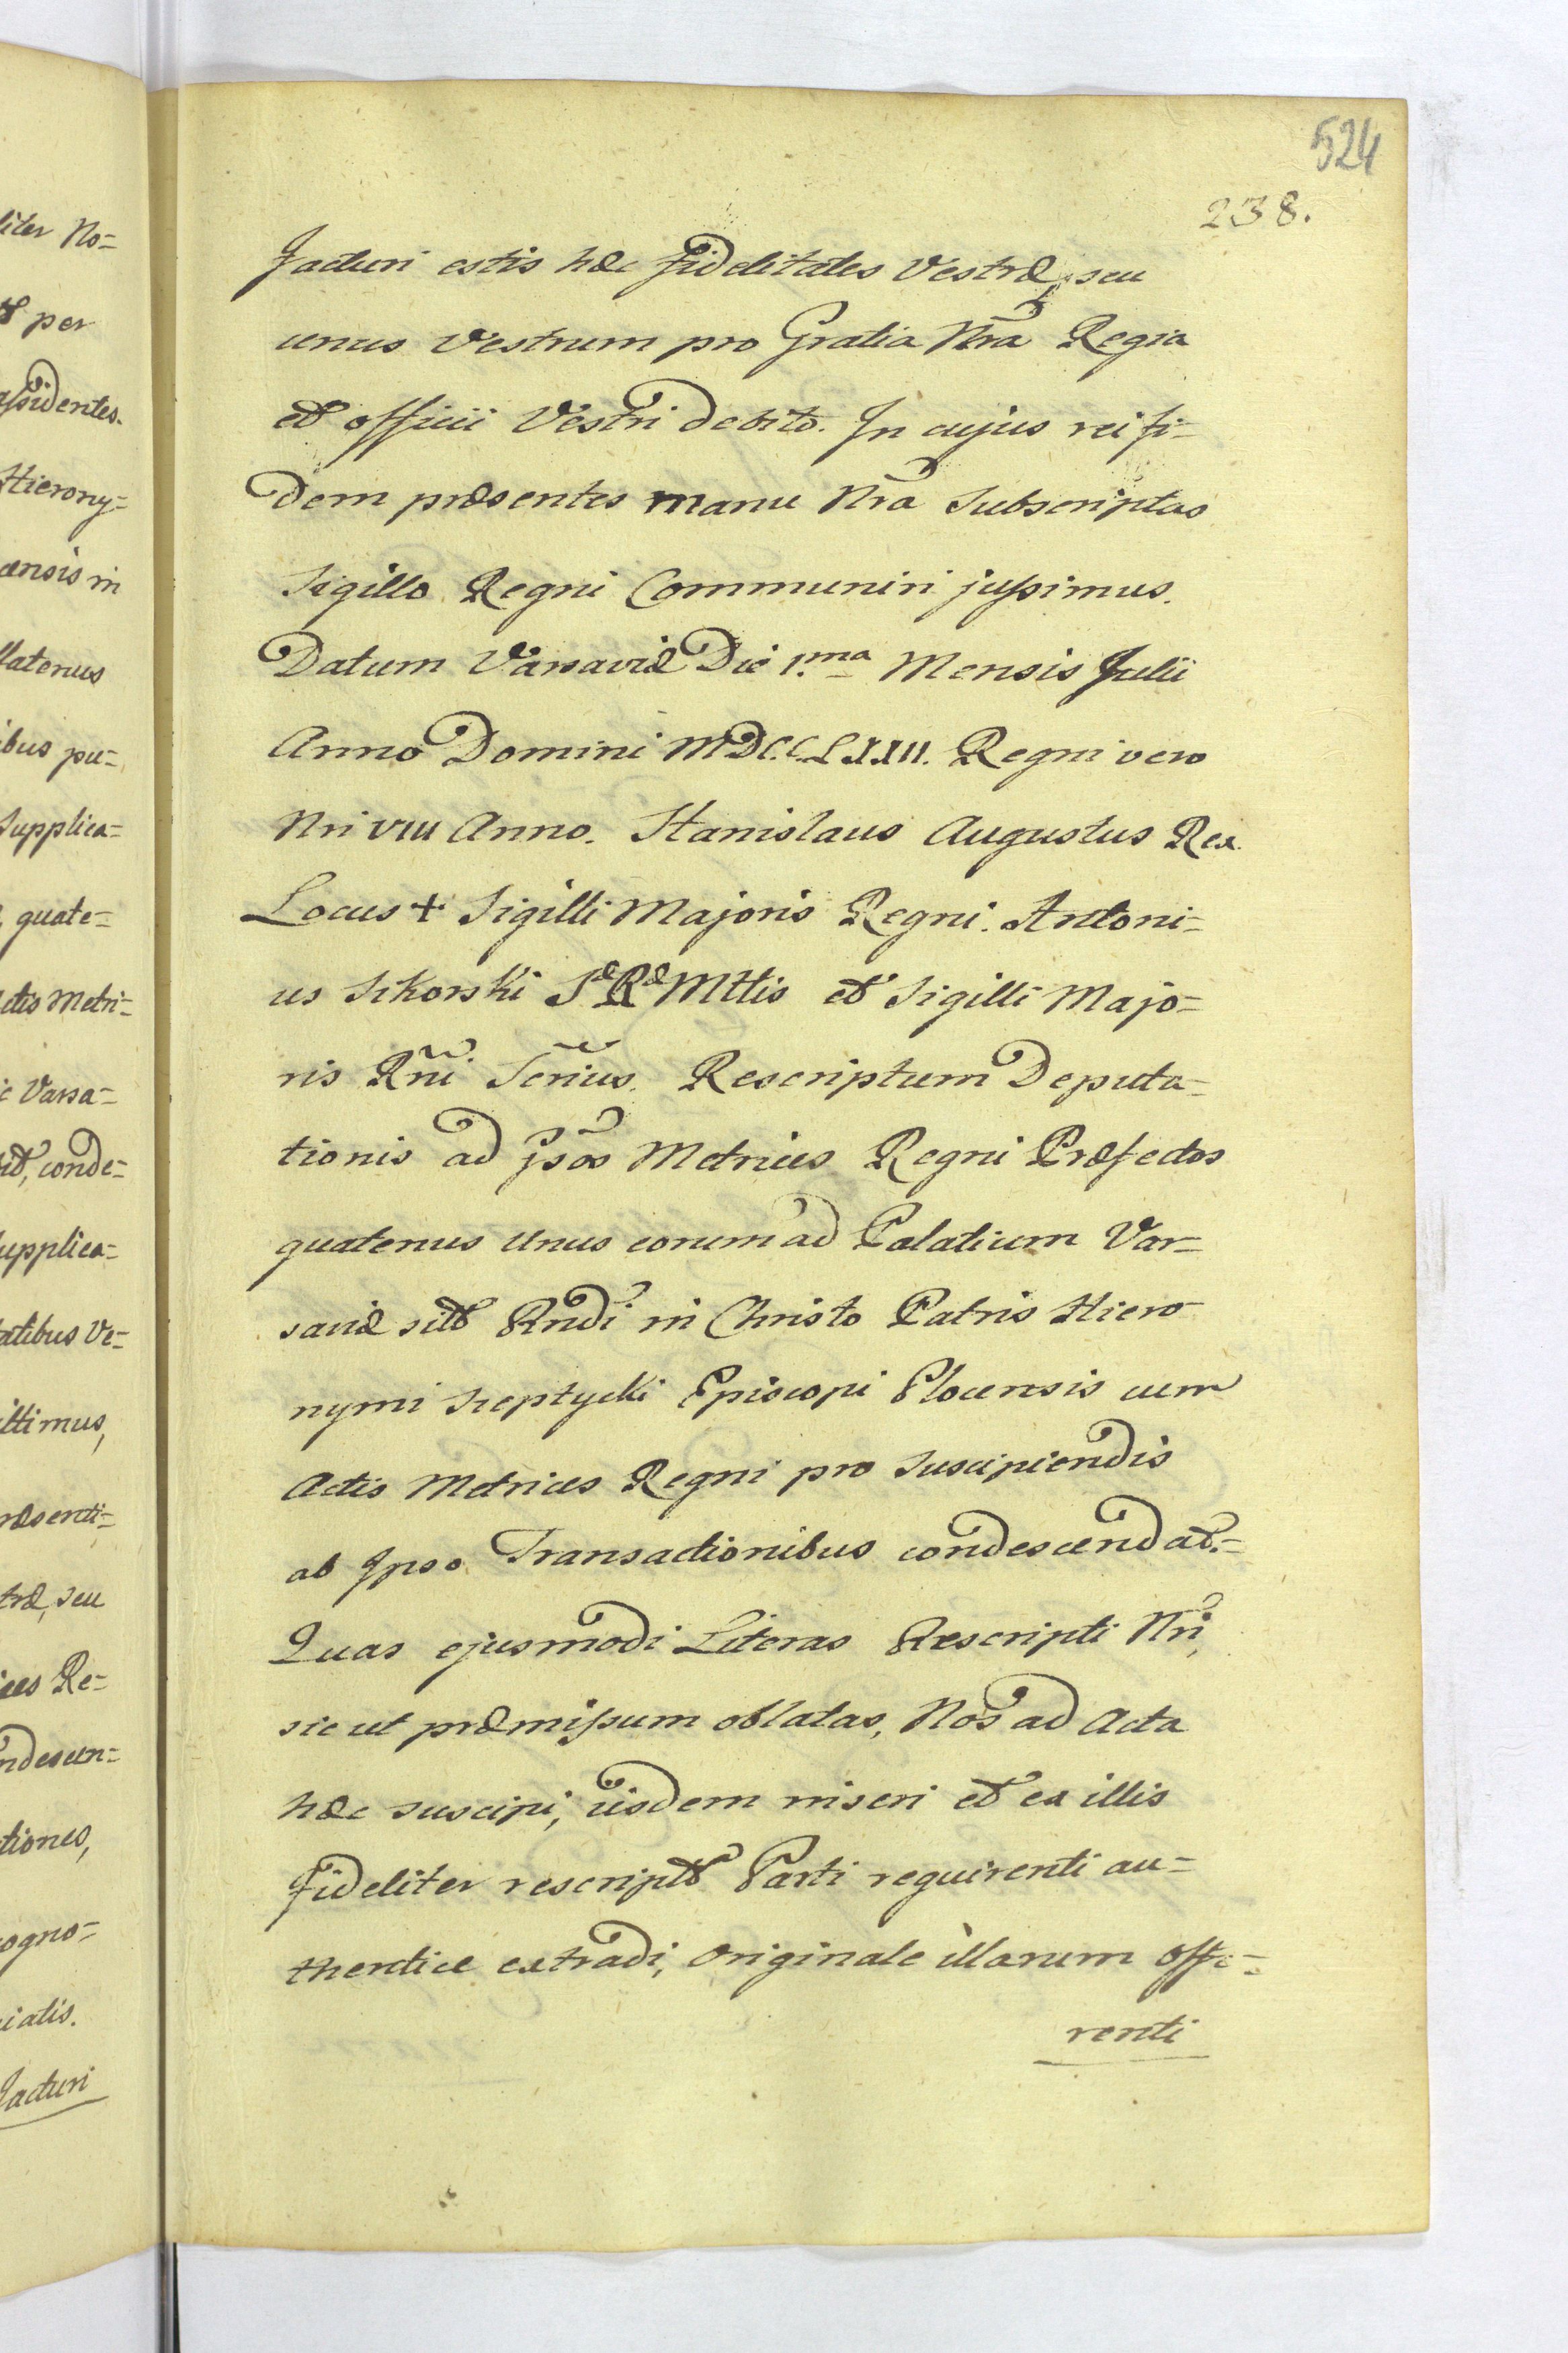 524
238.
facturi estis hæc fidelitates Vestræ, seu
unus Vestrum pro Gratia Nrã Regia
et officii Vestri debito. In cujus rei fi=
dem præsentes manu Nrã Subscriptas
Sigillo Regni Communiri jussimus.
Datum Varsaviæ Die 1.ma Mensis Julii
Anno Domini MDCCLXXII. Regni vero
Nri VIII Anno. Stanislaus Augustus Rex.
Locus + Sigilli Majoris Regni. Antoni=
us Sikorski S æ R æ Mttis et Sigilli Majo=
ris Rñi Scrius. Rescriptum Deputa=
tionis ad jpsos Metrices Regni Præfectos
quatenus unus eorum ad Palatium Var=
saviæ sitt Rndi in Christo Patris Hiero
nymi Szeptycki Episcopi Plocensis cum
Actis Metrices Regni pro Suscipiendis
ab Ipso Transactionibus condescendat.=
Quas ejusmodi Literas Rescripti Nri,
sic ut præmissum oblatas, Nos ad Acta
hæc suscipi, iisdem inseri et ex illis
fideliter rescript Parti requirenti au=
thentice extradi, Originale illarum offe=
renti
liter No=
per
Hierony=
censis in
llatenus
ibus pu=
Supplica=
quate=
ctis Metri=
c Varsa=
conde=
upplica=
atibus Ve=
ittimus,
ræsenti=
træ, seu
ices Re=
ndescen=
tiones,
cogno=
cialis.
facturi